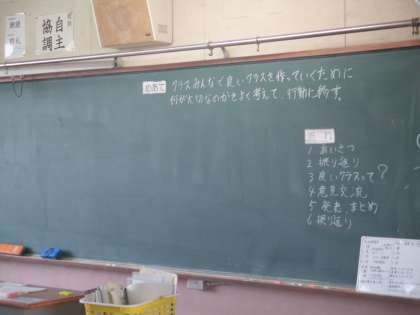 自主
協調
めあて クラスみんなで良いクラスを作っていくために
何が大切なのかをよく考えて、行動に移す。
流れ
1 あいさつ
2 振り返り
3 良いクラスって?
4 意見交流
5 発表、まとめ
6 振り返り